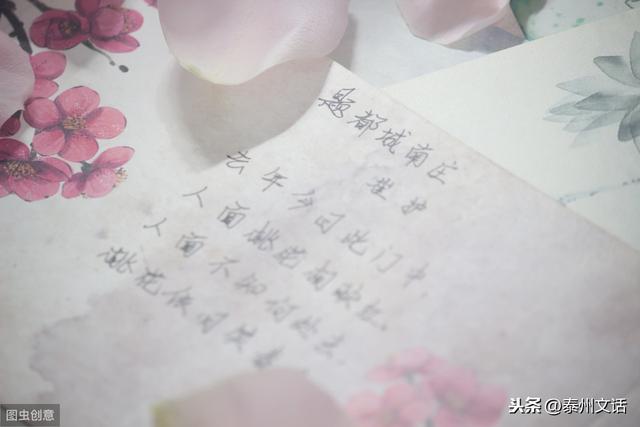 题都城南庄
崔护
去年今日此门中,
人面桃花相映红.
人面不知何处去,
桃花依旧笑春
图虫创意
头条 @泰州文话